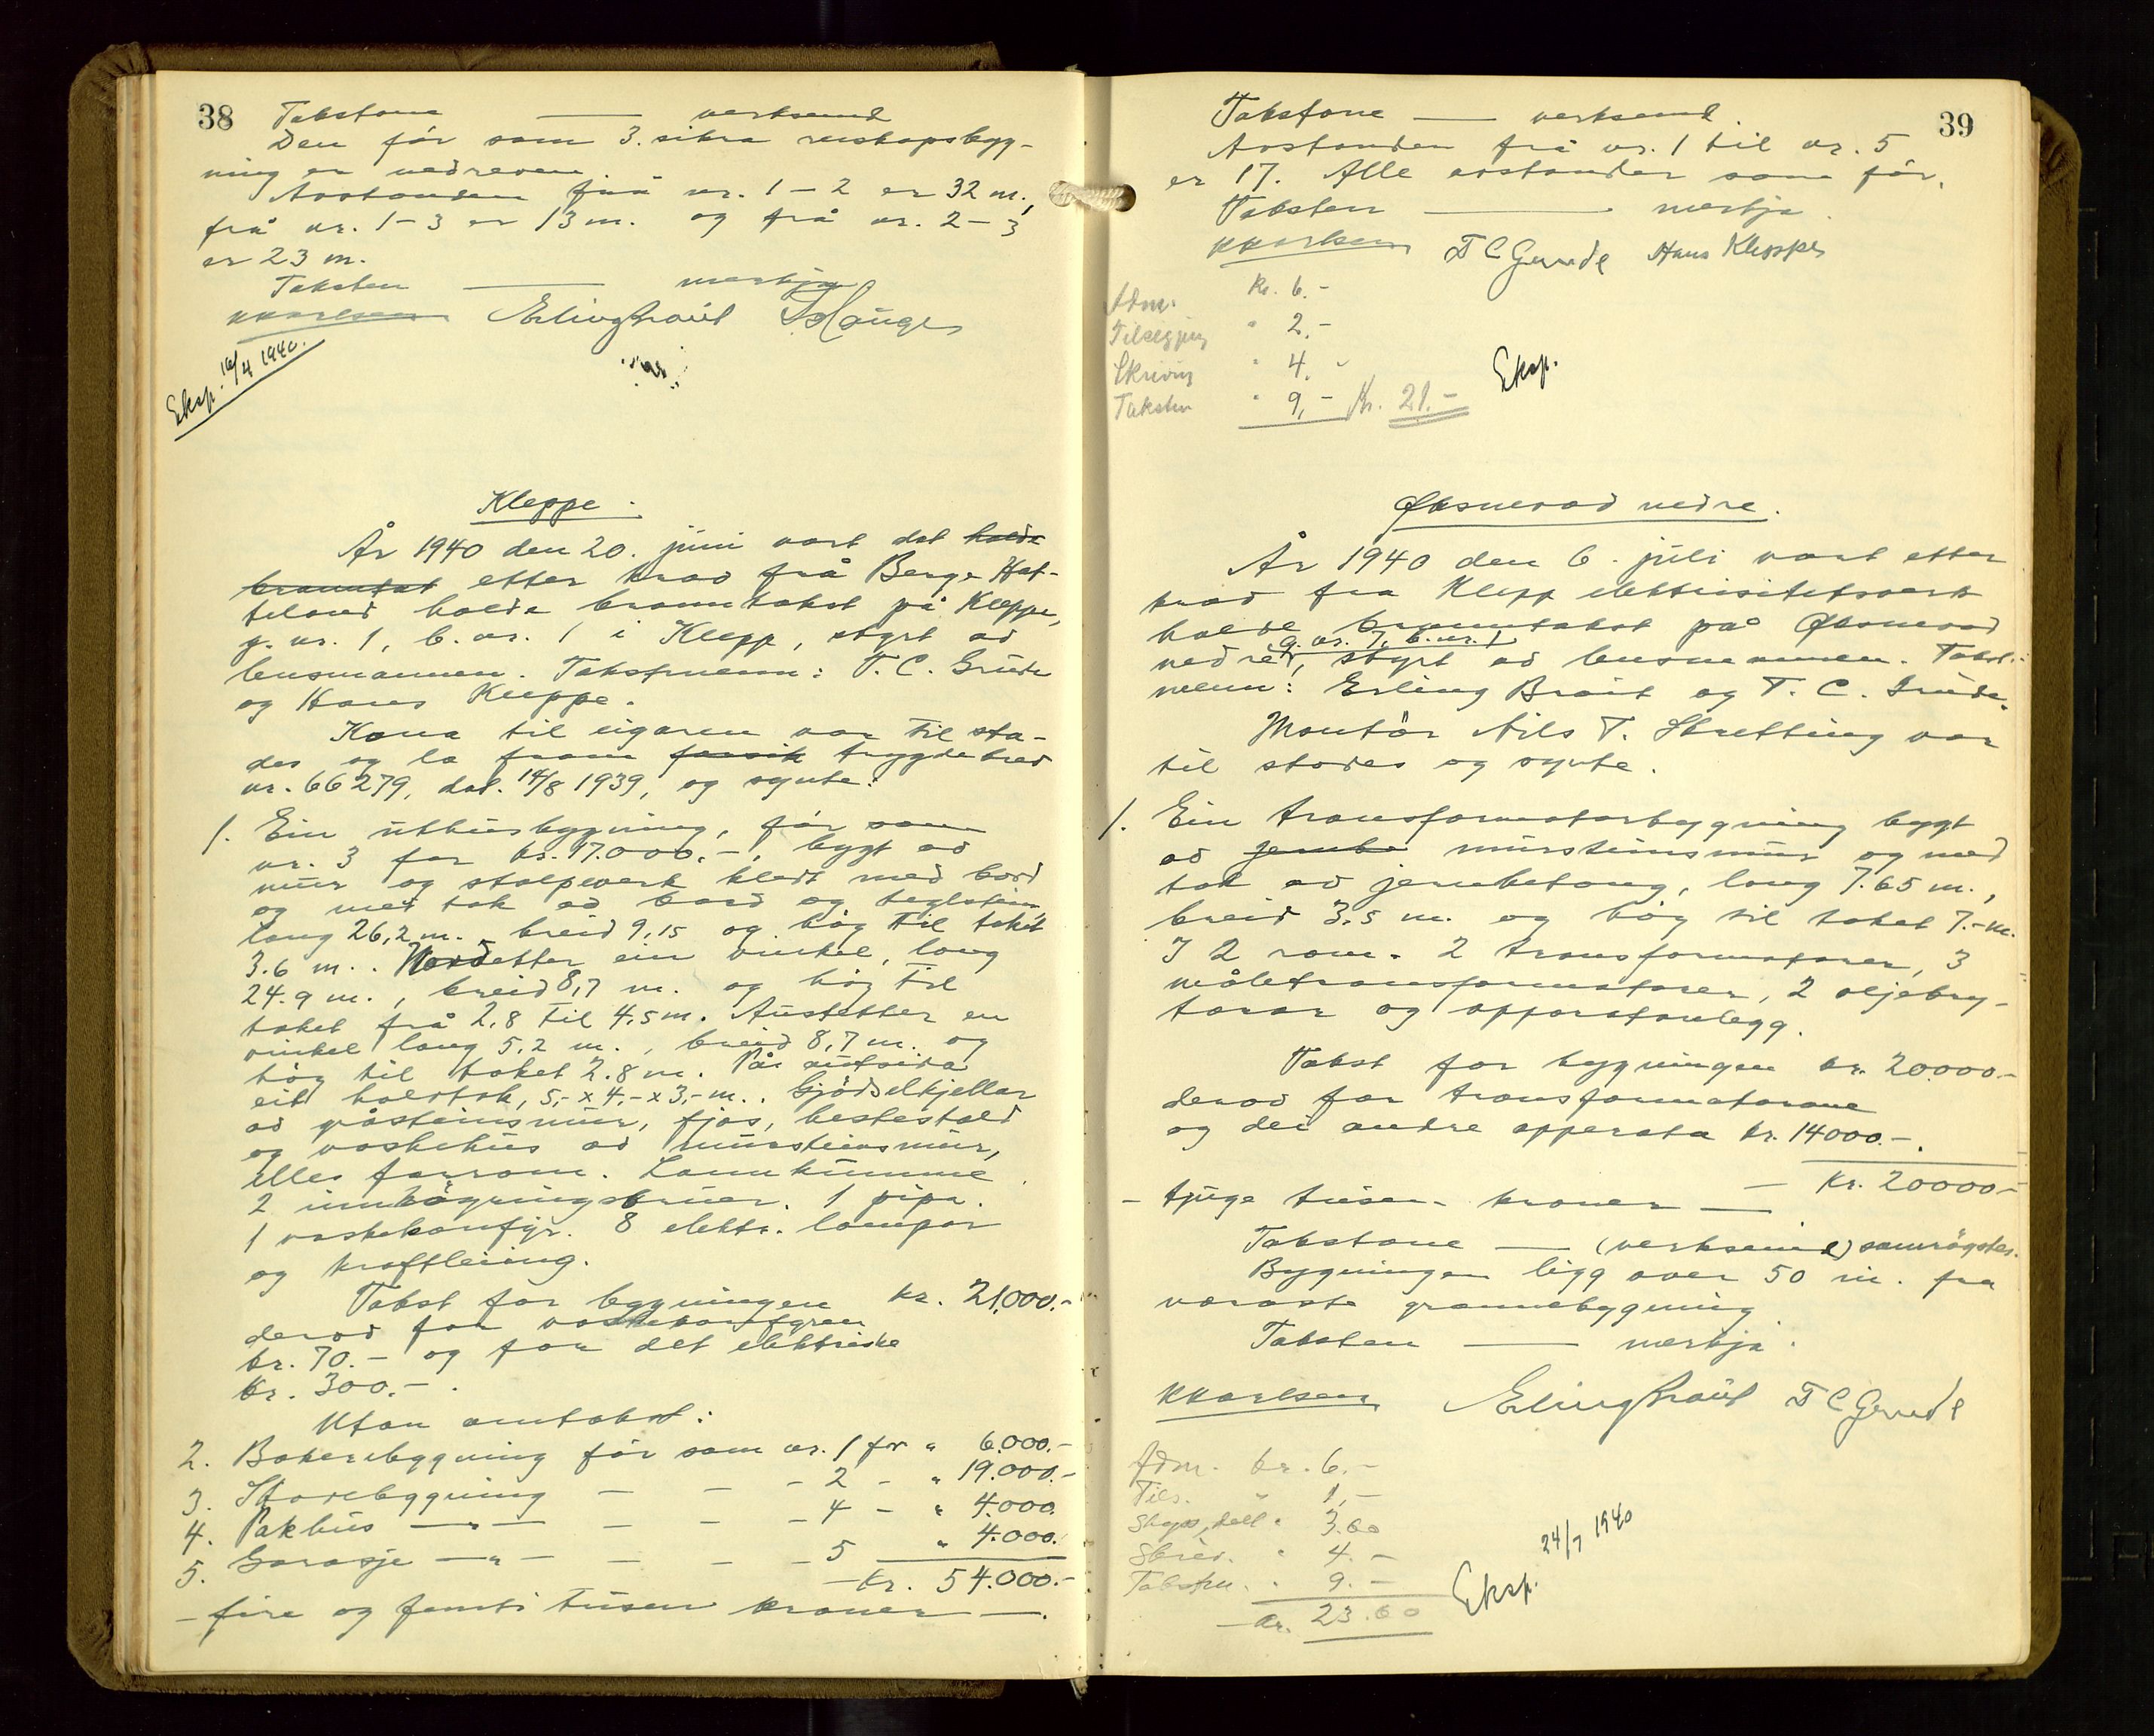 38
Takstane — verksemd
Den før som 3. sikra reiskapsbygg-
ning er nedreven.
Avstanden frå nr. 1 – 2 er 32 m.,
frå nr. 1 – 3 er 13 m. og frå nr. 2 – 3
er 23 m.
Taksten — merkja
KKarlsen Erling Braut
Eksp. 16/4 1940.
Kleppe.
År 1940 den 20. juni vart det halde
branntakst etter krav frå Berge Hat-
teland halde branntakst på Kleppe,
g. nr. 1, b. nr. 1 i Klepp, styrt av
lensmannen. Takstmenn: T. C. Grude
og Hans Kleppe.
Kona til eigaren var til sta-
des og la fram trygdebrev
nr. 66279, dat. 14/8 1939, og synte:
1. Ein uthusbygning, før som
nr. 3 for kr. 17.000.-, bygt av
mur og stolpeverk kledt med bord
og med tak av bord og teglstein,
lang 26,2 m. breid 9,15 og høg til taket
3.6 m.. Nordetter ein vinkel, lang
24.9 m., breid 8,7 m. og høg til
taket frå 2,8 til 4,5 m. Austetter en
vinkel lang 5,2 m., breid 8,7 m. og
høg til taket 2.8 m. På
eit halvtak, 5,- x 4,- x 3,- m.. Gjødselkjellar
av gråsteinsmur, fjøs, hestestald
og vaskehus av mursteinsmur,
elles forrom. Landkumme
2 innkøyringsbruer. 1 pipe.
1 vaskekomfyr. 8 elektr. lampor
og kraftleiing.
Takst for bygningen kr. 21,000.-
derav for vaskekomfyren
kr. 70.- og for det elektriske
kr. 300.-.
Utan omtakst:
2. Bakeribygning før som nr. 1 for " 6.000.-
3. Storebygning — — - 2 - " 19.000.-
4. Pakhus —"— — — - 4 - " 4.000.
5. Garasje —"— — — - 5 " 4.000.
— kr. 54.000.-
- fire og femti tusen kroner —.
39
Takstane — verksemd.
Avstanden frå nr. 1 til nr. 5
er 17. Alle avstandar som før.
Taksten — merkja.
KKarlsen T C Grude Hans Kleppe
Adm. Kr. 6.-
Tilseiing " 2,-
Skriving " 4. -
Taksten " 9,- Kr. 21.-
Eksp.
Øksnevad nedre.
År 1940 den 6. juli vart etter
krav fra Klepp elektrisitetsverk
halde branntakst på Øksnevad
g. nr. 7, b. nr. 1
nedre, styrt av lensmannen. Takst-
menn: Erling Braut og T. C. Grude.
Montør Nils T. Skretting var
til stades og synte.
1. Ein transformatorbygning bygt
av jernbe mursteinsmur og med
tak av jernbetong, lang 7.65 m.,
breid 3,5 m. og høg til taket 7.- m.
I 2 rom. 2 transformatorer, 3
måletransformatorer, 2 oljebry-
tarar og apparatanlegg.
Takst for bygningen kr. 20.000.-
derav for transformatorane
og dei andre apparata kr. 14000.-.
— Kr. 20000.-
- tjuge tusen kroner —
Takstane — (verksemd) samrøystes.
Bygningen ligg over 50 m. fra
næraste grannebygning
Taksten — merkja.
KKarlsen Erling Braut T C Grude
Adm. kr. 6.-
Tils. " 1,-
Skyss, " 3.60
Skriv. " 4.-
Taksm. " 9.-
— kr. 23.60
Eksp. 24/7 1940